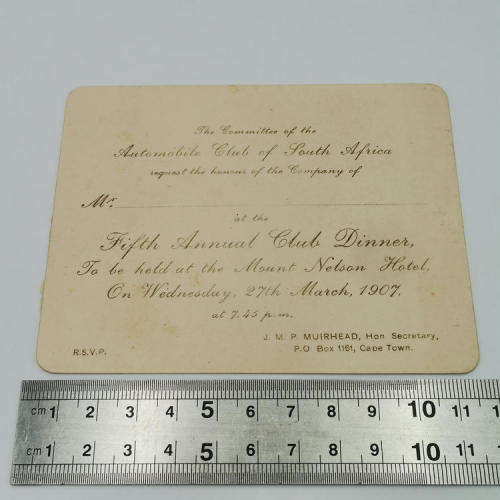 The Committee of the
Automobile Club of South Africa
request the honour of the Company of
Mr.
at the
Fifth Annual Club Dinner,
To be held at the Mount Nelson Hotel,
On Wednesday, 27th March, 1907,
at 7.45 p.m.
J. M. P. MUIRHEAD, Hon Secretary,
R.S.V.P.
P.O Box 1161, Cape Town.
cm 1 2 3 4 5 6 7 8 9 10 11 1
cm 1 2 3 4 5 6 7 8 9 10 11